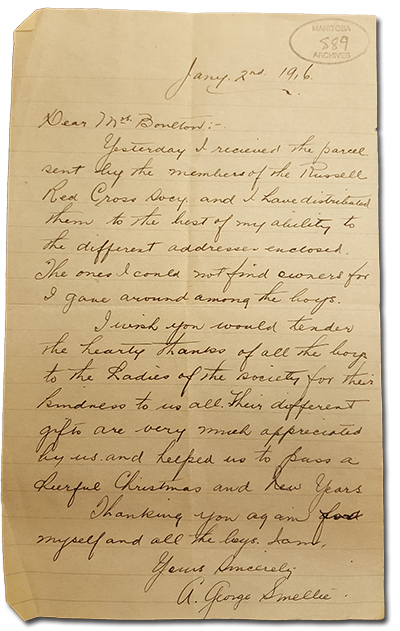 MANITOBA
889
ARCHIVES
Jany. 2nd. 1916.
Dear Mrs. Boulton:-
Yesterday I recieved the parcel
sent by the members of the Russell
Red Cross Socy. and I have distributed
them to the best of my ability to
the different addresses enclosed.
The ones I could not find owners for
I gave around among the boys.
I wish you would tender
the hearty thanks of all the boys
to the Ladies of the society for their
kindness to us all. Their different
gifts are very much appreciated
by us. and helped us to pass a
cheerful Christmas and New Years
Thanking you again for
myself and all the boys. I am,
Yours Sincerely
A. George Smellie.